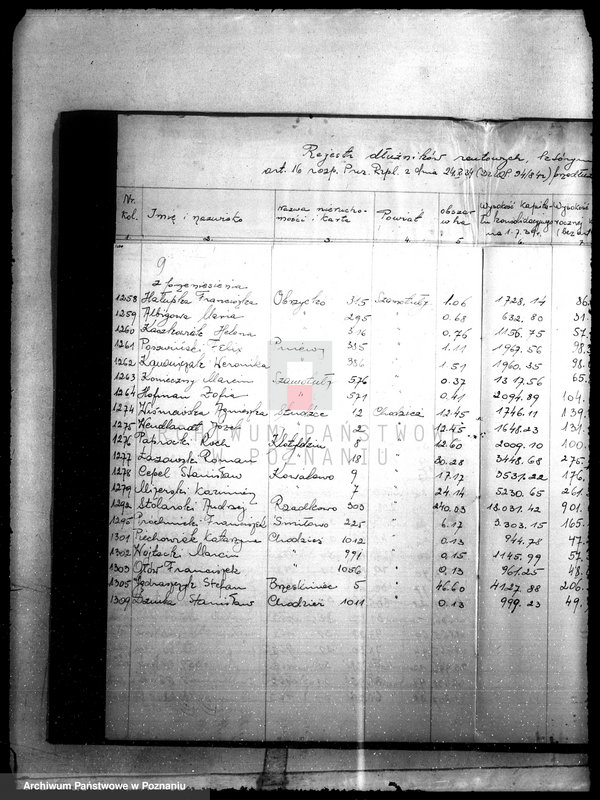 Rejestr dłużników rentowych, którym
art. 16 rozp. Prez. Rzpl. z dnia 24.X.34 (Dz.U.R.P. 94/842)
Nr. kol. Imię i nazwisko Nazwa nierucho-mości i karta Powiat obszar w ha Wysokość kapita-łu konsolidacyjnego na 1.7.39 r. Wysokość rocznej
1 2. 3. 4. 5. 6. 7.
9
z przeniesienia
1258 Hałupka Franciszka Obrzycko 315 Szamotuły 1.06 1728.14 36.
1259 Maria " 295 " 0.68 632.80 31.
1260 Kaczkowska Helena " 316 " 0.76 1156.75 57.
1261 Felix Pniewy 335 " 1.11 1967.56 98.
1262 Weronika " 336 " 1.51 1960.35 98.
1263 Konieczny Marcin Szamotuły 576 " 0.37 1317.56 65.
1264 Hofman Zofia " 571 " 0.41 2094.89 104.
1274 Wiśniewska Agnieszka 12 Chodzież 12.45 1746.11 139.
1275 Wendlandt Józef " 2 " 12.45 1648.23 131.
1276 Roch 8 " 12.60 2009.10 100.
1277 Roman " 18 " 30.28 3448.68 275.
1278 Cepel Stanisław 9 " 17.17 3531.22 176.
1279 Mizerski Kazimierz " 7 " 24.14 5230.65 261.
1292 Stolarski Andrzej Rzadkowo 303 " 240.03 18.031.42 901.
1295 Franciszek Śmiłowo 225 " 6.17 3.303.15 165.
1301 Piechowiak Katarzyna Chodzież 1012 " 0.13 944.78 47.
1302 Wojtacki Marcin " 991 " 0.15 1145.99 57.
1303 Franciszek " 1056 " 0.13 961.25 48.
1305 Jędraszczyk Stefan 5 " 46.60 4127.88 206.
1309 Stanisław Chodzież 1011 " 0.13 999.23 49.
ARCHIWUM PAŃSTWOWE
W POZNANIU
Archiwum Państwowe w Poznaniu